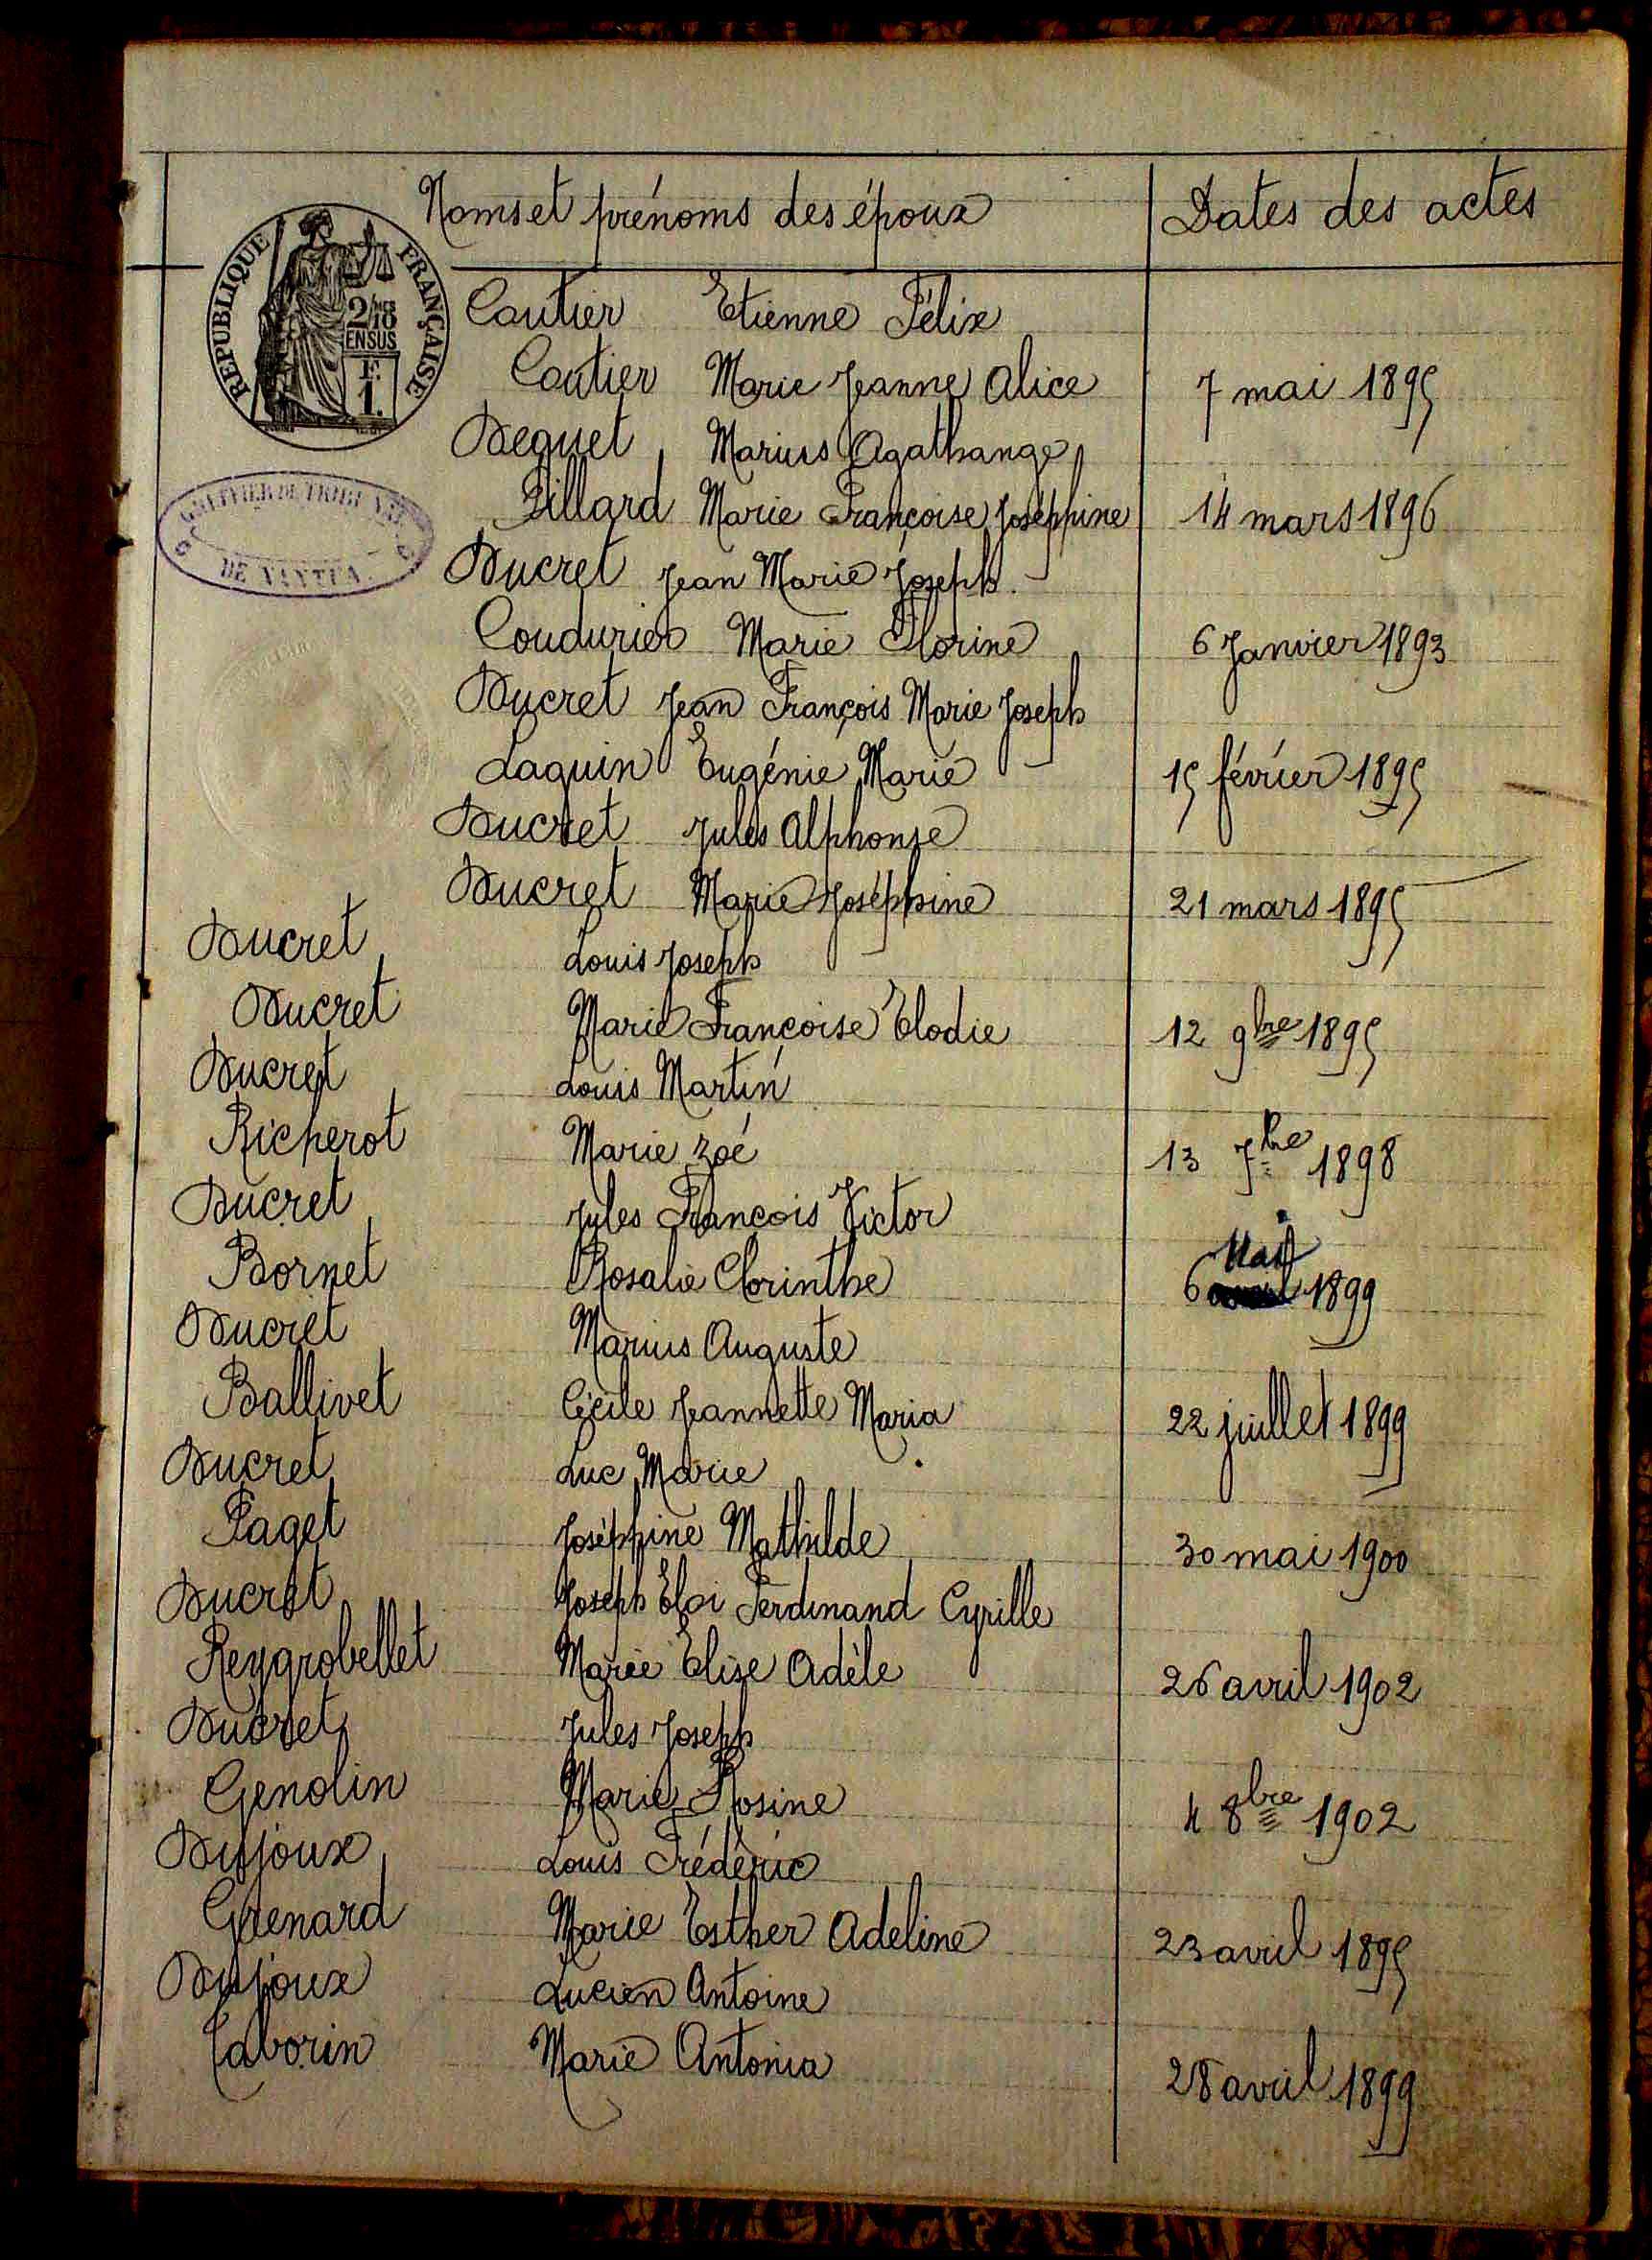 Noms et prénoms des époux Dates des actes
RÉPUBLIQUE FRANÇAISE
2/10
EN SUS
F.
1.
Coutier Etienne Félix
Coutier Marie Jeanne Alice 7 mai 1895
Deguet Marius Agathange
Pillard Marie Françoise Joséphine 14 mars 1896
GREFFIER DU TRIBUNAL
DE NANTUA
Ducret Jean Marie Joseph
Coudurier Marie Florine 6 Janvier 1893
Ducret Jean François Marie Joseph
Laguin Eugénie Marie 15 février 1895
Ducret Jules Alphonse
Ducret Marie Joséphine 21 mars 1895
Ducret Louis Joseph
Ducret Marie Françoise Elodie 12 9bre 1895
Ducret Louis Martin
Richerot Marie Zoé 13 7bre 1898
Ducret Jules François Victor
Bornet Rosalie Clorinthe 6 Mai 1899
Ducret Marius Auguste
Ballivet Cécile Jeannette Maria 22 juillet 1899
Ducret Luc Marie
Paget Joséphine Mathilde 30 mai 1900
Ducret Joseph Eloi Ferdinand Cyrille
Reygrobellet Marie Elise Adèle 26 avril 1902
Ducret Jules Joseph
Genolin Marie Rosine 4 8bre 1902
Dujoux Louis Frédéric
Grenard Marie Esther Adeline 23 avril 1895
Dujoux Lucien Antoine
Taborin Marie Antonia 28 avril 1899